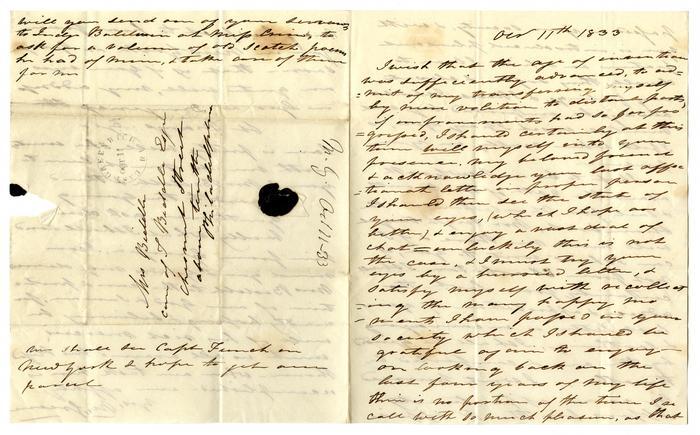 will you send one of your servants
to Judge Baldwin at Miss to
ask for a volume of old Scotch poems
he had of mine, & take care of them
for me
Mrs Biddle
care of J Biddle Esqr
Chesnut Street
above tenth
Philadelphia
Oct 11-33
We shall see Capt Finch in
New York & hope to get our
parcel
Oct 11th 1833
I wish that the age of invention
was sufficiently advanced, to ad-
=mit of my transferring myself
by mere volition to distant parts,
if improvements had so far pro
gressed, I should certainly at this
time will myself into your
presence my beloved friend
& acknowledge your last affec
tionate letter in proper person
I should then see the state of
your eyes, (which I hope are
better) & enjoy a vast deal of
chat = unluckily this is not
the case, & I must try your
eyes by a letter, &
satisfy myself with recollect
=ing the many happy mo
=ments I have passed in your
society which I should be
grateful if to enjoy
on looking back on the
last four years of my life
there is no portion of the time I re
call with so much pleasure, as that